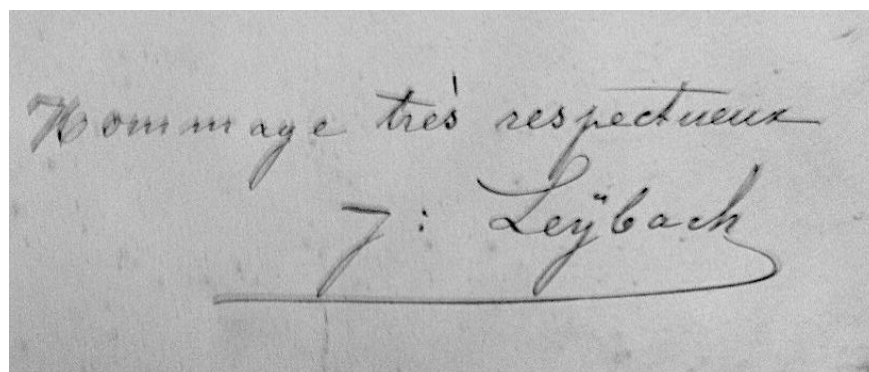 Hommage très respectueux
J: Leÿbach